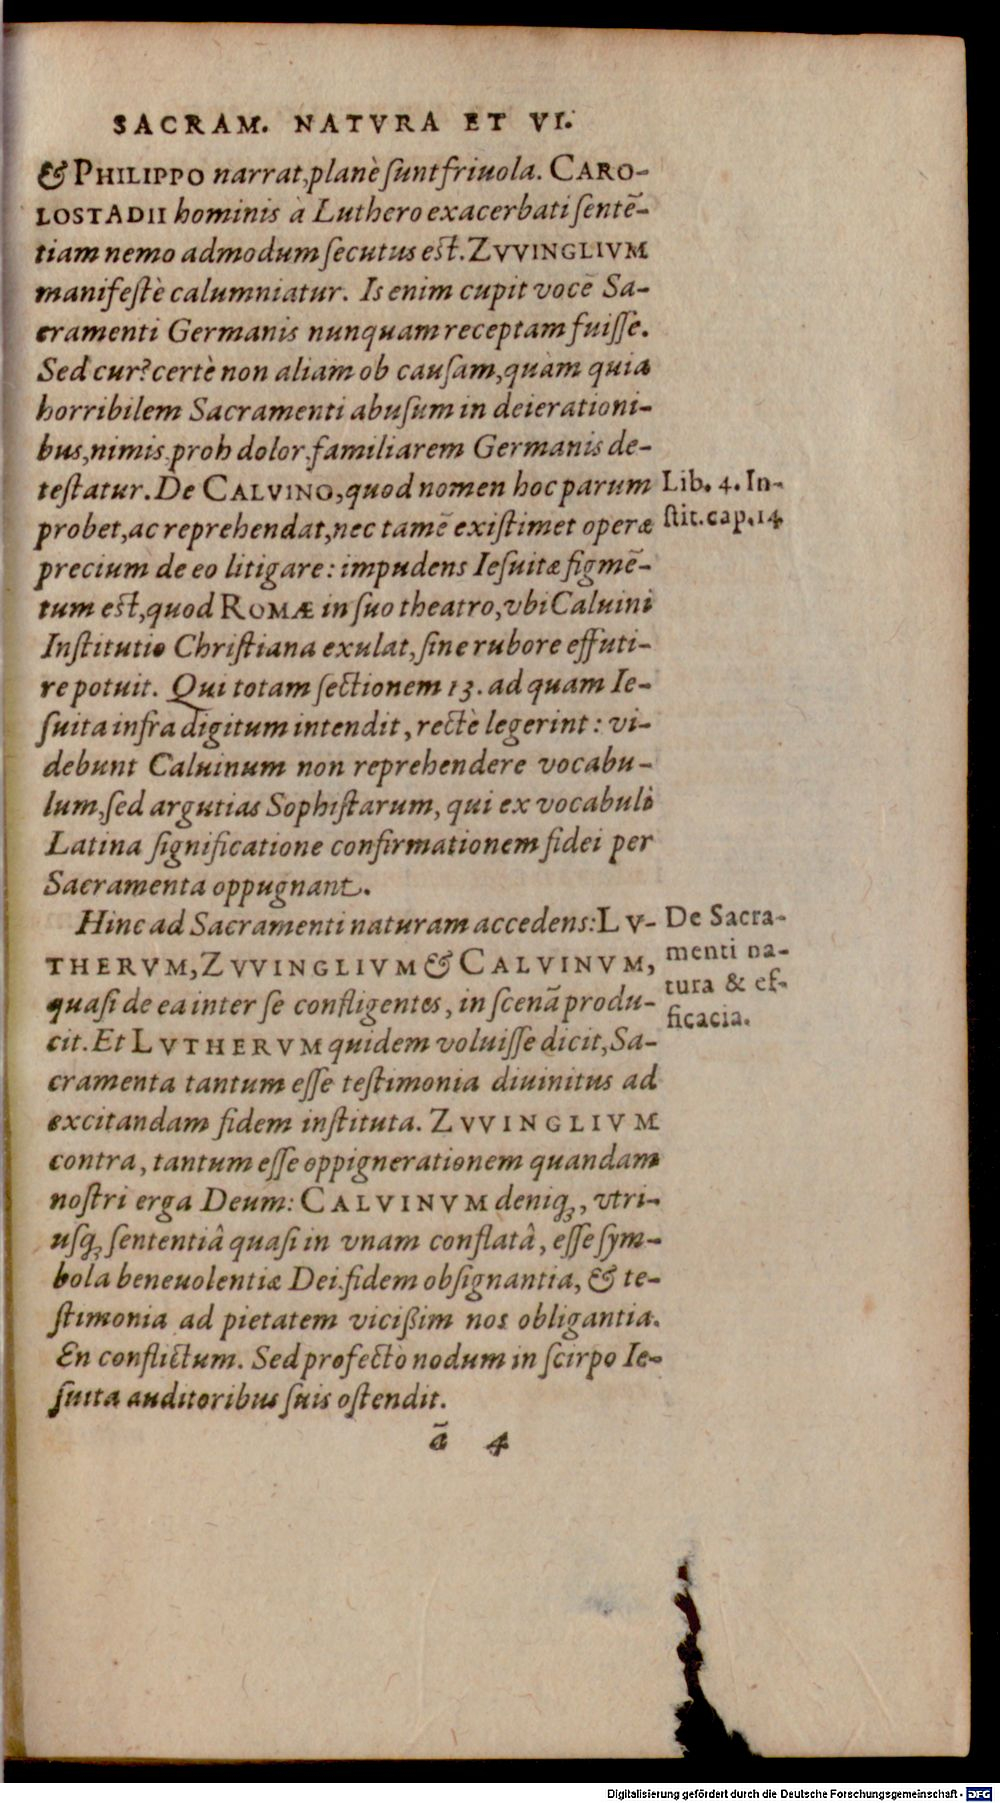 SACRAM. NATVRA ET VI.
& PHILIPPO narrat, planè ſunt friuola. CARO-
LOSTADII hominis à Luthero exacerbati ſentē-
tiam nemo admodum ſecutus eſt. ZVVINGLIVM
manifeſtè calumniatur. Is enim cupit vocē Sa-
cramenti Germanis nunquam receptam fuiſſe.
Sed cur? certè non aliam ob cauſam, quàm quia
horribilem Sacramenti abuſum in deierationi-
bus, nimis proh dolor familiarem Germanis de-
teſtatur. De CALVINO, quod nomen hoc parum
probet, ac reprehendat, nec tamē exiſtimet operæ
precium de eo litigare: impudens Ieſuitæ figmē-
tum eſt, quod ROMÆ in ſuo theatro, vbi Caluini
Inſtitutio Chriſtiana exulat, ſine rubore effuti-
re potuit. Qui totam ſectionem 13. ad quam Ie-
ſuita infra digitum intendit, rectè legerint: vi-
debunt Caluinum non reprehendere vocabu-
lum, ſed argutias Sophiſtarum, qui ex vocabuli
Latina ſignificatione confirmationem fidei per
Sacramenta oppugnant.
Lib. 4. In-
ſtit. cap. 14
Hinc ad Sacramenti naturam accedens: LV-
THERVM, ZVVINGLIVM & CALVINVM,
quaſi de ea inter ſe confligentes, in ſcenā produ-
cit. Et LVTHERVM quidem voluiſſe dicit, Sa-
cramenta tantum eſſe teſtimonia diuinitus ad
excitandam fidem inſtituta. ZVVINGLIVM
contra, tantum eſſe oppignerationem quandam
noſtri erga Deum: CALVINVM deniq́ꝫ, vtri-
uſqꝫ ſententiâ quaſi in vnam conflatâ, eſſe ſym-
bola beneuolentiæ Dei fidem obſignantia, & te-
ſtimonia ad pietatem vicißim nos obligantia.
En conflictum. Sed profectò nodum in ſcirpo Ie-
ſuita auditoribus ſuis oſtendit.
De Sacra-
menti na-
tura & ef-
ficacia.
ā 4
Digitalisierung gefördert durch die Deutsche Forschungsgemeinschaft - DFG